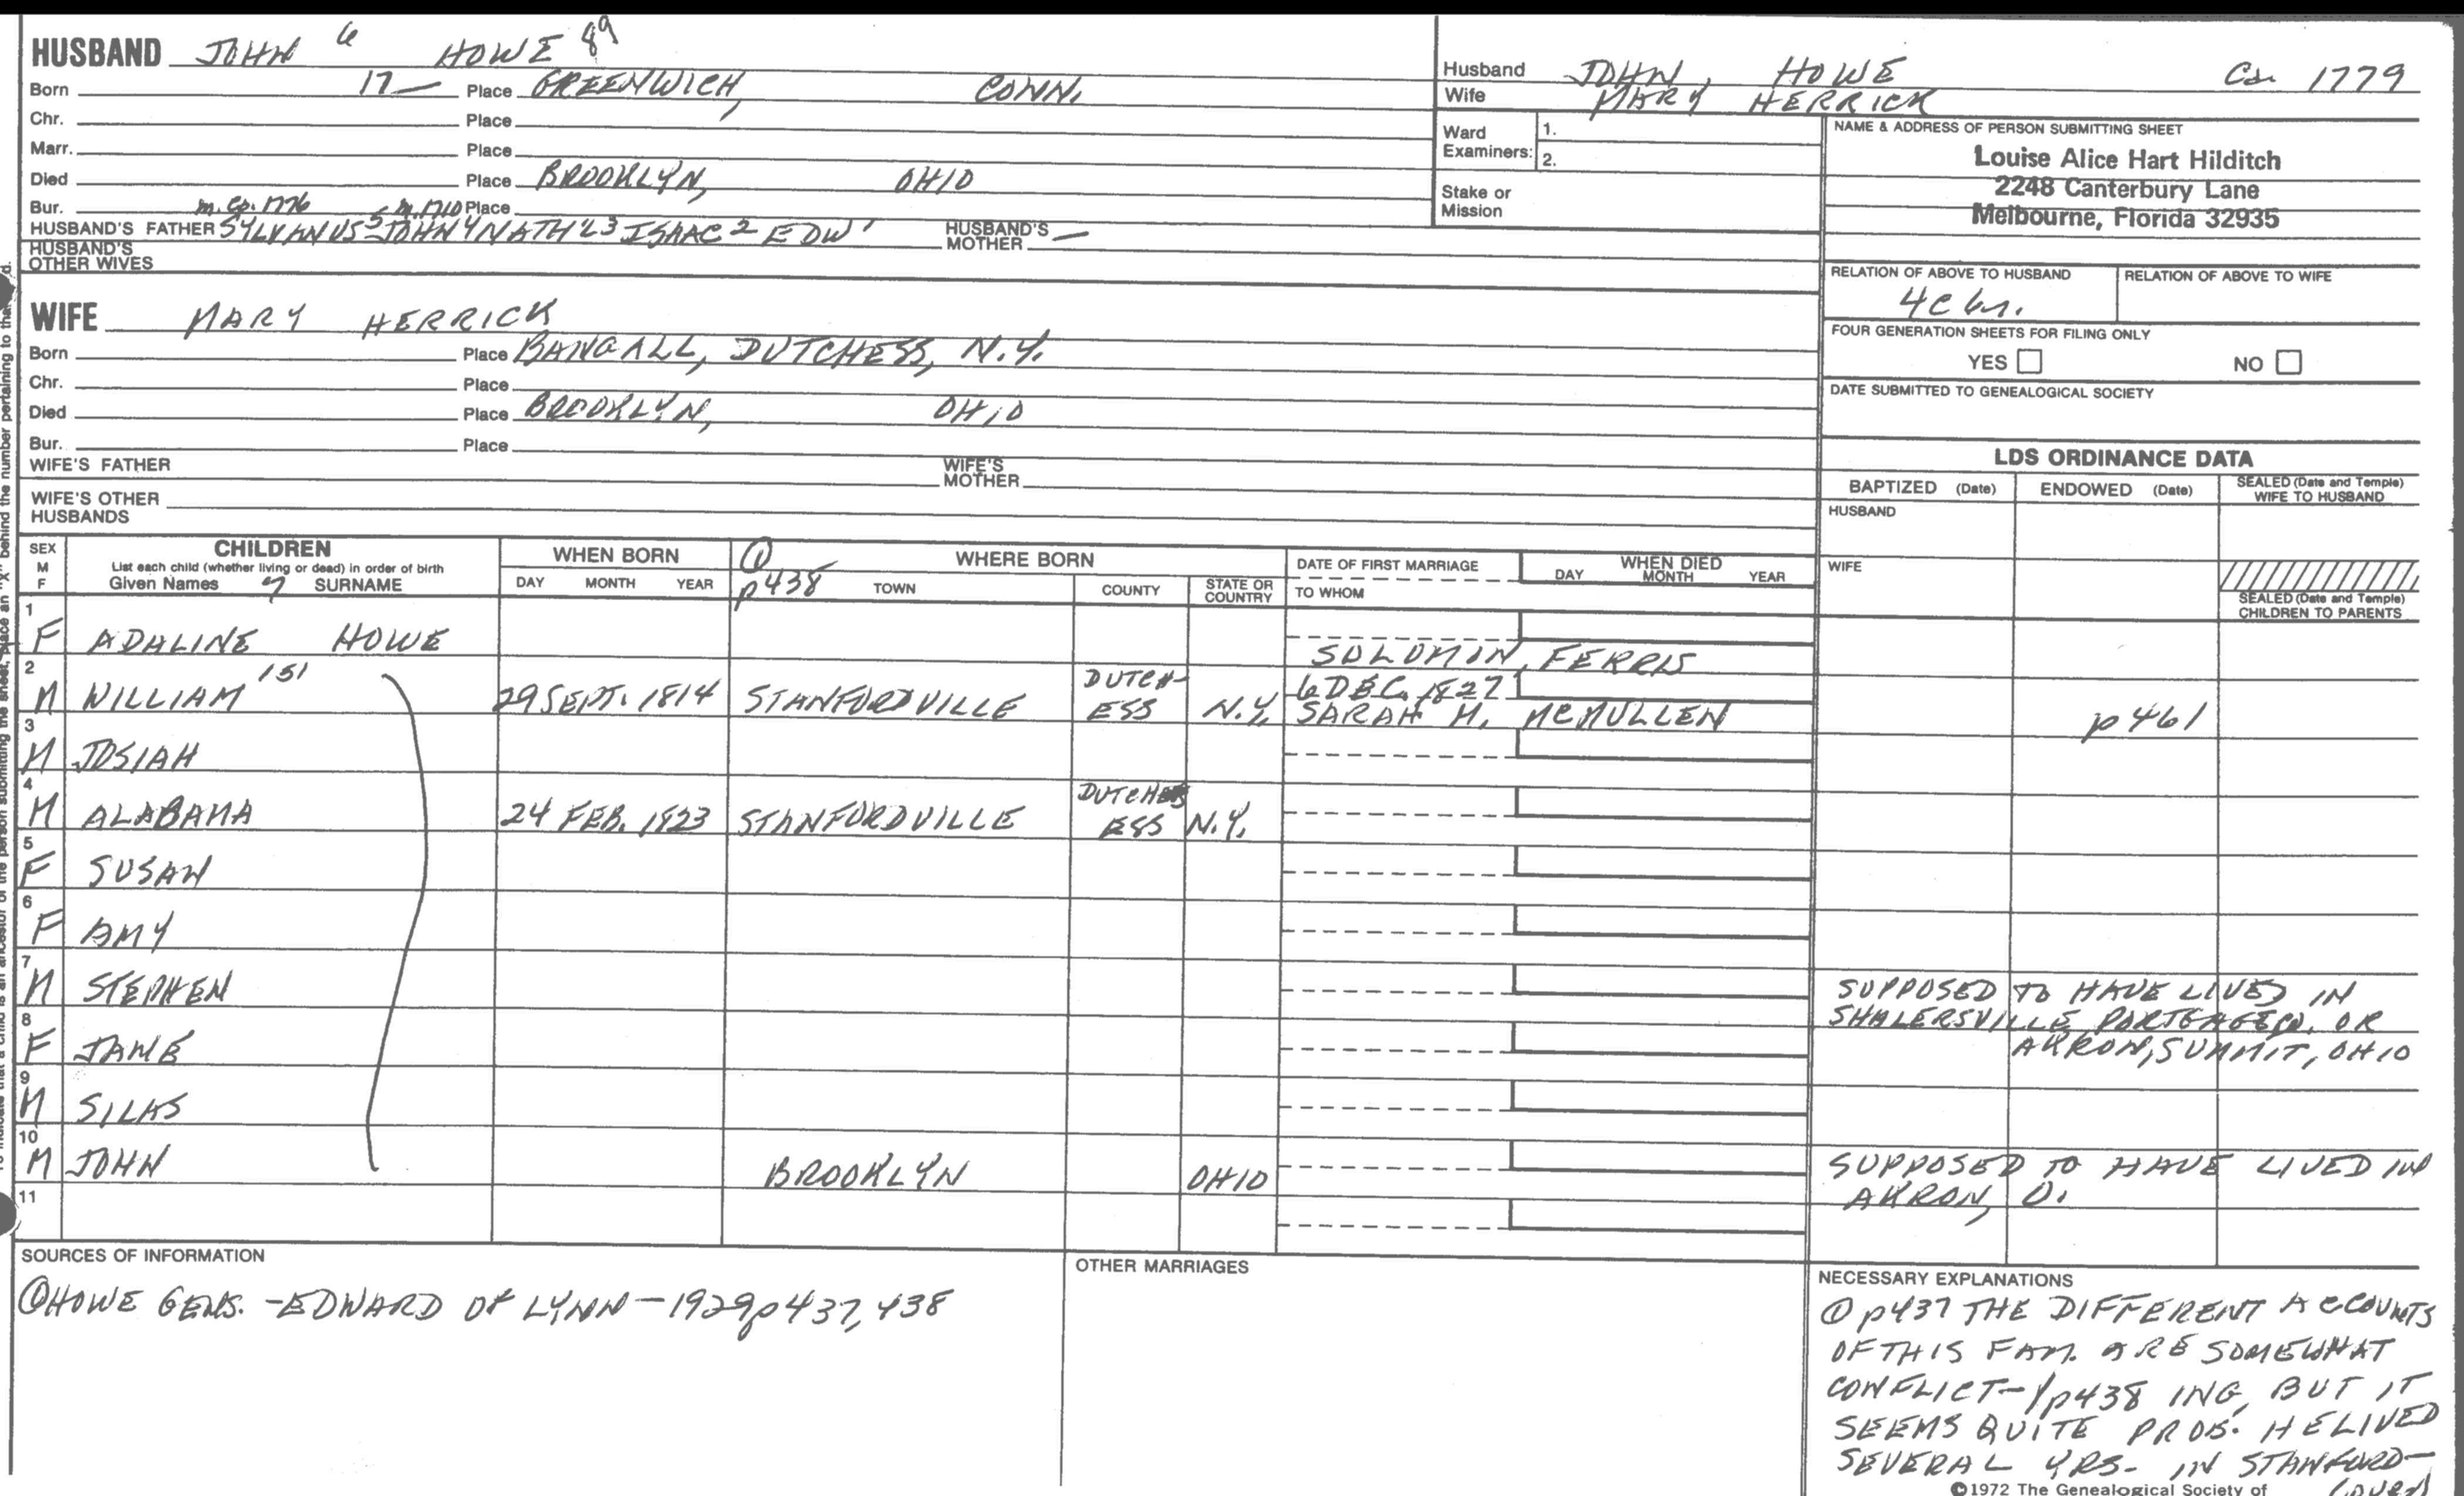 HUSBAND JOHN 6 HOWE 89
Born 17— Place GREENWICH, CONN.
Chr. Place
Marr. Place
Died Place BROOKLYN, OHIO
Bur. m. Ca. 1776 m. 1710 Place
HUSBAND'S FATHER SYLVANUS 5 JOHN 4 NATH'L 3 ISAAC 2 EDW 1 HUSBAND'S MOTHER —
HUSBAND'S OTHER WIVES
Husband JOHN, HOWE Ca. 1779
Wife MARY HERRICK
Ward Examiners: 1.
2.
Stake or Mission
NAME & ADDRESS OF PERSON SUBMITTING SHEET
Louise Alice Hart Hilditch
2248 Canterbury Lane
Melbourne, Florida 32935
RELATION OF ABOVE TO HUSBAND RELATION OF ABOVE TO WIFE
FOUR GENERATION SHEETS FOR FILING ONLY
YES NO
DATE SUBMITTED TO GENEALOGICAL SOCIETY
WIFE MARY HERRICK
Born Place BANGALL, DUTCHESS, N.Y.
Chr. Place
Died Place BROOKLYN, OHIO
Bur. Place
WIFE'S FATHER WIFE'S MOTHER
WIFE'S OTHER HUSBANDS
LDS ORDINANCE DATA
BAPTIZED (Date) ENDOWED (Date) SEALED (Date and Temple) WIFE TO HUSBAND
HUSBAND
WIFE
SEALED (Date and Temple) CHILDREN TO PARENTS
SEX M F
CHILDREN
List each child (whether living or dead) in order of birth
Given Names 7 SURNAME
WHEN BORN
DAY MONTH YEAR
① p438 WHERE BORN
TOWN COUNTY STATE OR COUNTRY
DATE OF FIRST MARRIAGE
TO WHOM
WHEN DIED
DAY MONTH YEAR
1 F ADALINE HOWE SOLOMON FERRIS
2 M WILLIAM 151 29 SEPT. 1814 STANFORDVILLE DUTCH-ESS N.Y. 6 DEC. 1827 SARAH M. McMULLEN p461
3 M JOSIAH
4 M ALABAMA 24 FEB. 1823 STANFORDVILLE DUTCHESS N.Y.
5 F SUSAN
6 F AMY
7 M STEPHEN SUPPOSED TO HAVE LIVED IN
SHALERSVILLE PORTAGE CO. OR
8 F JANE AKRON, SUMMIT, OHIO
9 M SILAS
10 M JOHN BROOKLYN OHIO SUPPOSED TO HAVE LIVED IN
AKRON, O.
11
SOURCES OF INFORMATION
① HOWE GENS. - EDWARD OF LYNN - 1929 p437, 438
OTHER MARRIAGES
NECESSARY EXPLANATIONS
① p437 THE DIFFERENT ACCOUNTS
OF THIS FAM. ARE SOMEWHAT
CONFLICT-/p438 ING, BUT IT
SEEMS QUITE PROB. HE LIVED
SEVERAL YRS. IN STANFORD-
©1972 The Genealogical Society of